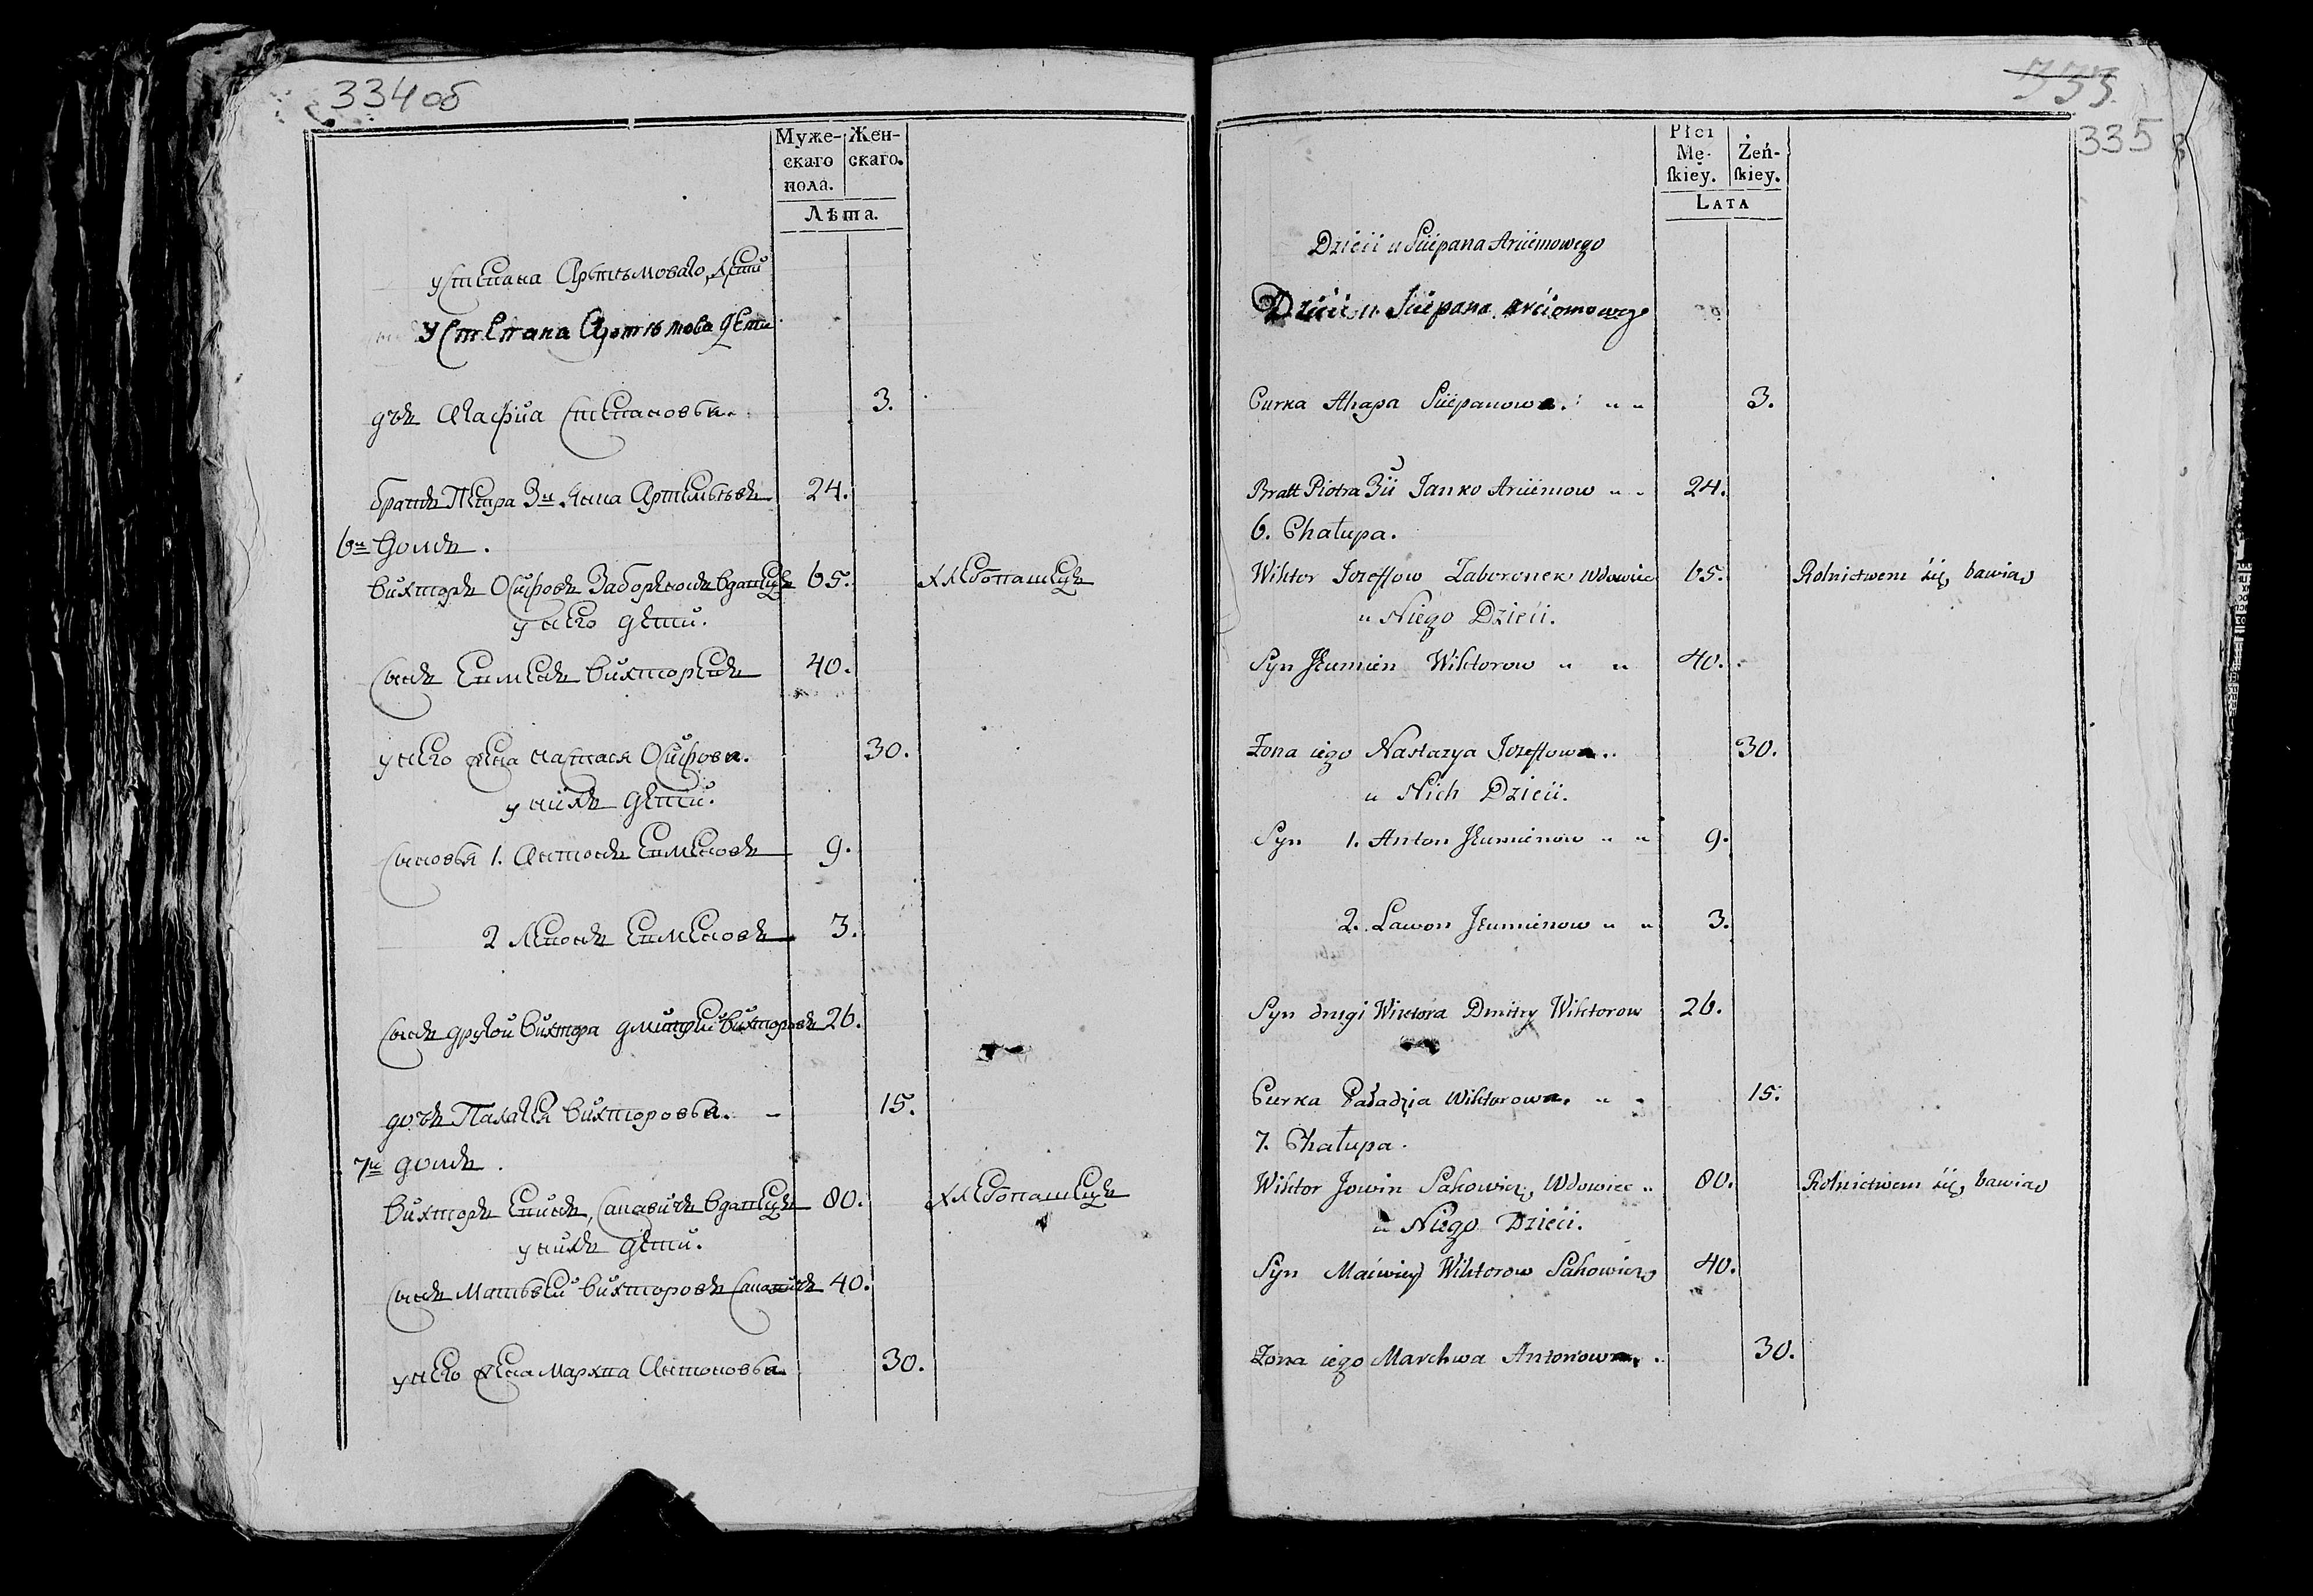 334об
Муже- Жен-
скаго скаго.
пола.
Лѣта.
у Степана Артѣмоваго, дети
У Степана Артѣмова дети
дчь Агафиа Степановна. 3.
братъ Петра 3й Янка Артемьевъ 24.
6й Домъ.
Вихторъ Осифовъ Заборенокъ вдавецъ 65. хлебопашецъ
у него дети.
сынъ Евменъ Вихторовъ 40.
у него жена Настася Осифова. 30.
у нихъ дети.
сыновья 1. Антонъ Евменовъ 9.
2 Левонъ Евменовъ 3.
сынъ другой Вихтора Дмитрей Вихторовъ 26.
дочь Палагея Вихторовна. 15.
7й домъ.
Вихторъ Евинъ, Сапавичъ вдавецъ 80. хлебопашецъ
у нихъ дети.
сынъ Матвей Вихторовъ 40.
у него жена Мархва Антоновна 30.
333
335
Płci
Mę- Żeń-
ſkiey. ſkiey.
LATA
Dzieći u Sciepana Arciemowego
Dzieći u Sciepana Arciomowego
Curka Ahapa Sciepanowa. 3.
Bratt Piotra 3ii Janko Arciemow 24.
6. Chałupa.
Wiktor Jozeffow Zaboronek Wdowiec 65. Rolnictwem się bawiąo
u Niego Dzieći.
Syn Jeumien Wiktorow 40.
Żona iego Nastazya Jozeffowa. 30.
u Nich Dzieći.
Syn 1. Anton Jeumienow 9.
2. Lawon Jeumienow 3.
Syn drugi Wiktora Dmitry Wiktorow 26.
Curka Paładzia Wiktorowa. 15.
7. Chałupa.
Wiktor Jowin Sakowicz, Wdowiec 80. Rolnictwem się bawiąo
u Niego Dzieći.
Syn Maćwiey Wiktorow Sakowicz 40.
Żona iego Marchwa Antonowa. 30.